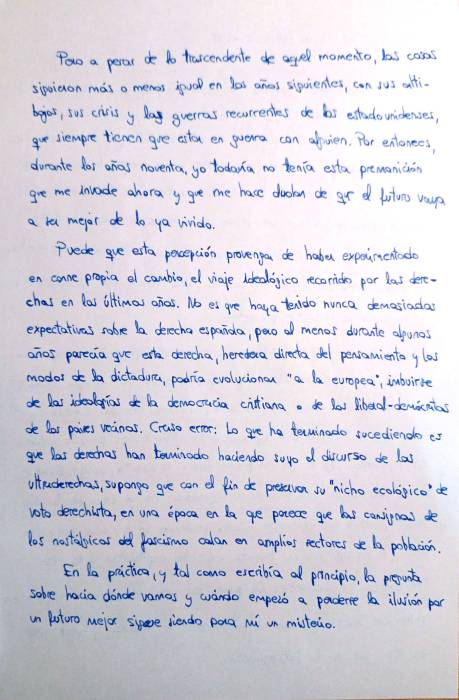 Pero a pesar de lo trascendente de aquel momento, las cosas
siguieron más o menos igual en los años siguientes, con sus alti-
bajos, sus crisis y las guerras recurrentes de los estadounidenses,
que siempre tienen que estar en guerra con alguien. Por entonces,
durante los años noventa, yo todavía no tenía esta premonición
que me invade ahora y que me hace dudar de que el futuro vaya
a ser mejor de lo ya vivido.
Puede que esta percepción provenga de haber experimentado
en carne propia el cambio, el viaje ideológico recorrido por las dere-
chas en los últimos años. No es que haya tenido nunca demasiadas
expectativas sobre la derecha española, pero al menos durante algunos
años parecía que esta derecha, heredera directa del pensamiento y los
modos de la dictadura, podría evolucionar "a la europea", imbuirse
de las ideologías de la democracia cristiana o de los liberal-demócratas
de los países vecinos. Craso error: Lo que ha terminado sucediendo es
que las derechas han terminado haciendo suyo el discurso de las
ultraderechas, supongo que con el fin de preservar su "nicho ecológico" de
voto derechista, en una época en la que parece que las consignas de
los nostálgicos del fascismo calan en amplios sectores de la población.
En la práctica, y tal como escribía al principio, la pregunta
sobre hacia dónde vamos y cuándo empezó a perderse la ilusión por
un futuro mejor sigue siendo para mí un misterio.